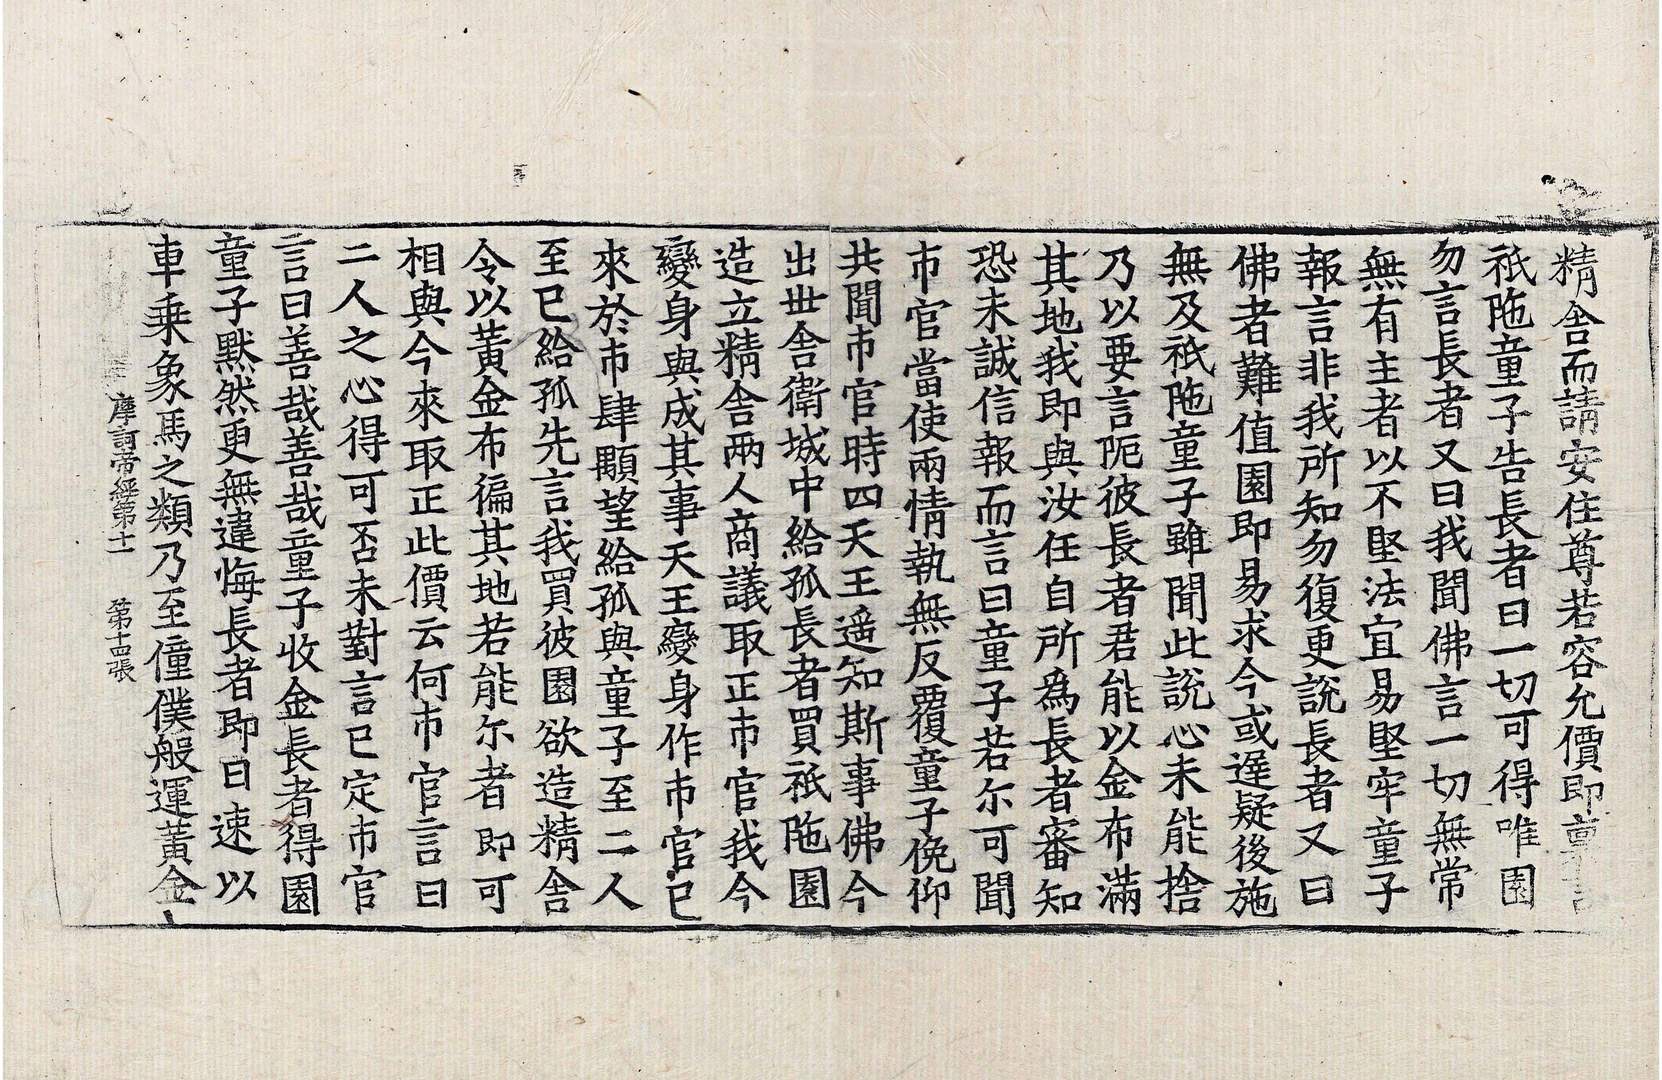 精舍而請安住尊若容允價即
祇陁童子告長者曰一切可得唯園
勿言長者又曰我聞佛言一切無常
無有主者以不堅法宜易堅牢童子
報言非我所知勿復更說長者又曰
佛者難值園即易求今或遅疑後施
無及祇陁童子雖聞此說心未能捨
乃以要言阨彼長者君能以金布滿
其地我即與汝任自所為長者審知
恐未誠信報而言曰童子若尓可聞
市官當使兩情執無反覆童子俛仰
共聞市官時四天王遥知斯事佛今
出世舍衛城中給孤長者買祇陁園
造立精舍兩人商議取正市官我今
變身與成其事天王變身作市官已
來於市肆顒望給孤與童子至二人
至已給孤先言我買彼園欲造精舍
令以黃金布徧其地若能尓者即可
相與今來取正此價云何市官言曰
二人之心得可否未對言已定市官
言曰善哉善哉童子收金長者得園
童子默然更無違悔長者即日速以
車乗象馬之類乃至僮僕般運黃金
摩訶帝經第十一 第十四張